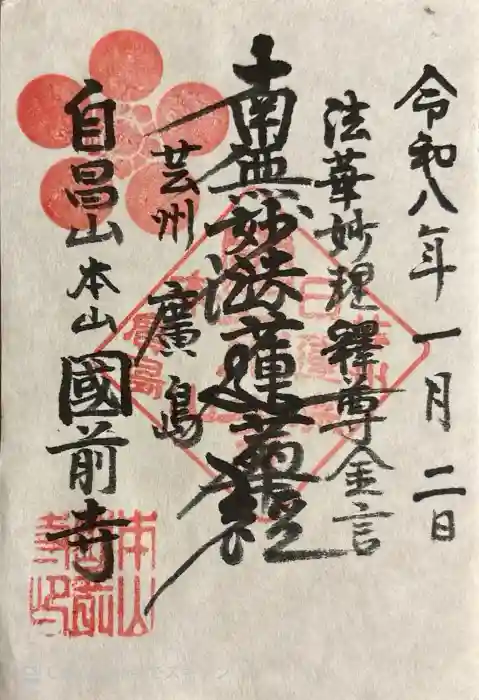 令和八年一月二日
法華妙理釋尊金言
南無妙法蓮華経
芸州廣島
自昌山本山國前寺